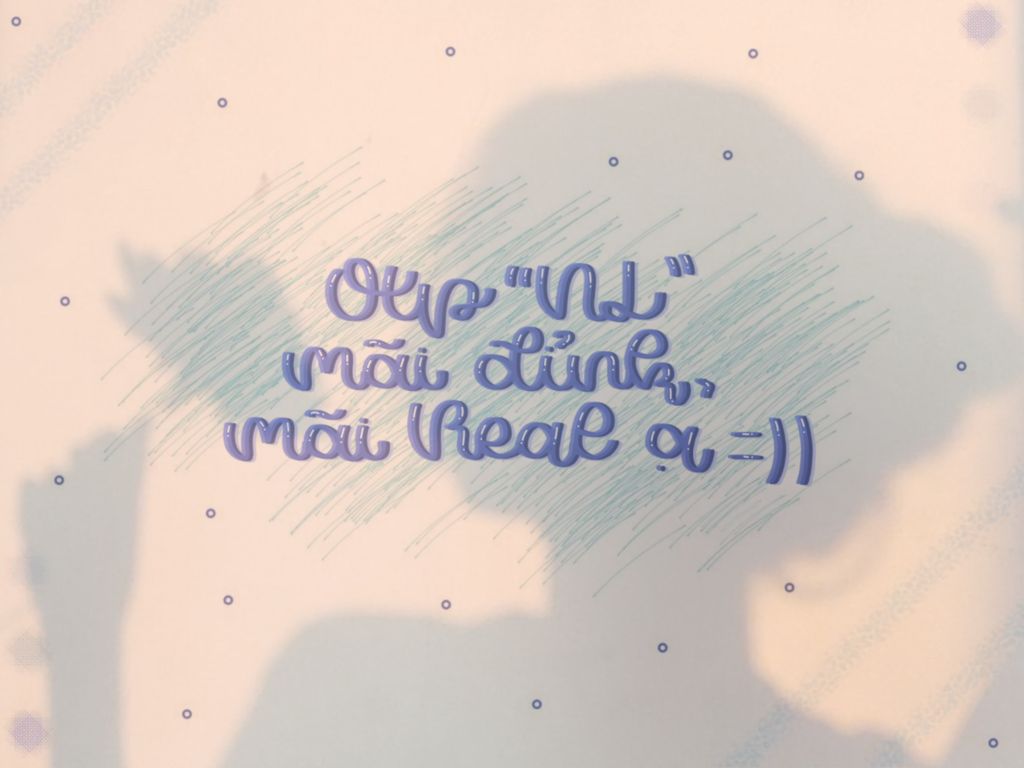 Otp “NL”
mãi đỉnh,
mãi Real ạ =))